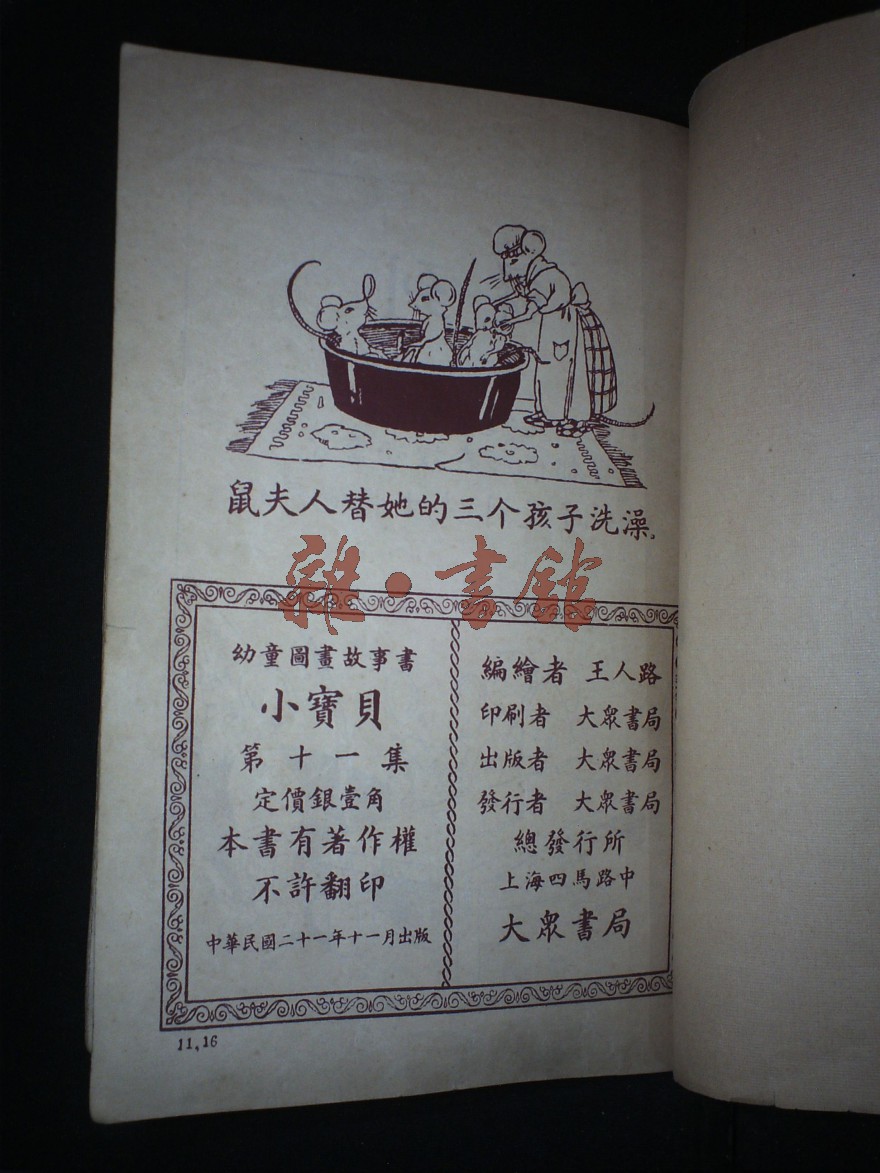 鼠夫人替她的三个孩子洗澡。
雜·書館
幼童圖畫故事書
小寶貝
第十一集
定價銀壹角
本書有著作權
不許翻印
中華民國二十一年十一月出版
編繪者 王人路
印刷者 大眾書局
出版者 大眾書局
發行者 大眾書局
總發行所
上海四馬路中
大眾書局
11,16